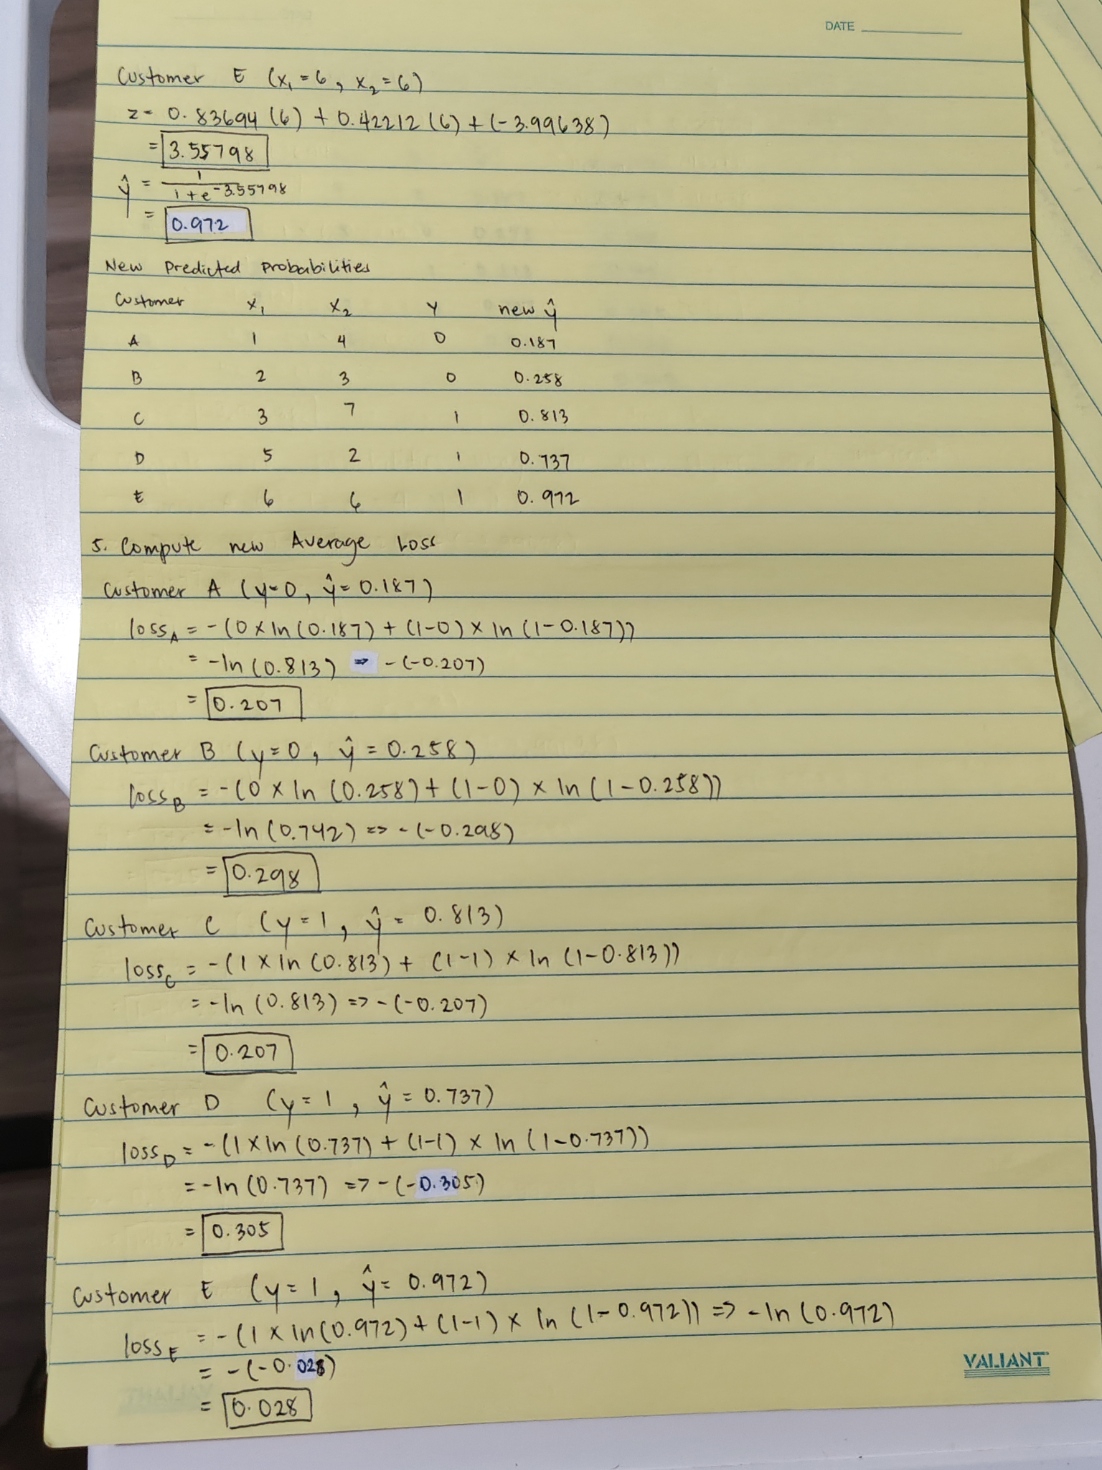 DATE
Customer E (x₁=6, x₂=6)
z = 0.83694 (6) + 0.42212 (6) + (-3.99638)
= 3.55798
ŷ = 1 / 1+e^-3.55798
= 0.972
New Predicted Probabilities
Customer x₁ x₂ y new ŷ
A 1 4 0 0.187
B 2 3 0 0.258
C 3 7 1 0.813
D 5 2 1 0.737
E 6 6 1 0.972
5. Compute new Average Loss
Customer A (y=0, ŷ=0.187)
loss_A = -(0 × ln (0.187) + (1-0) × ln (1-0.187))
= -ln (0.813) => -(-0.207)
= 0.207
Customer B (y=0, ŷ = 0.258)
loss_B = -(0 × ln (0.258) + (1-0) × ln (1-0.258))
= -ln (0.742) => -(-0.298)
= 0.298
Customer C (y=1, ŷ = 0.813)
loss_C = -(1 × ln (0.813) + (1-1) × ln (1-0.813))
= -ln (0.813) => -(-0.207)
= 0.207
Customer D (y=1, ŷ = 0.737)
loss_D = -(1 × ln (0.737) + (1-1) × ln (1-0.737))
= -ln (0.737) => -(-0.305)
= 0.305
Customer E (y=1, ŷ = 0.972)
loss_E = -(1 × ln (0.972) + (1-1) × ln (1-0.972)) => -ln (0.972)
= -(-0.028)
= 0.028
VALIANT